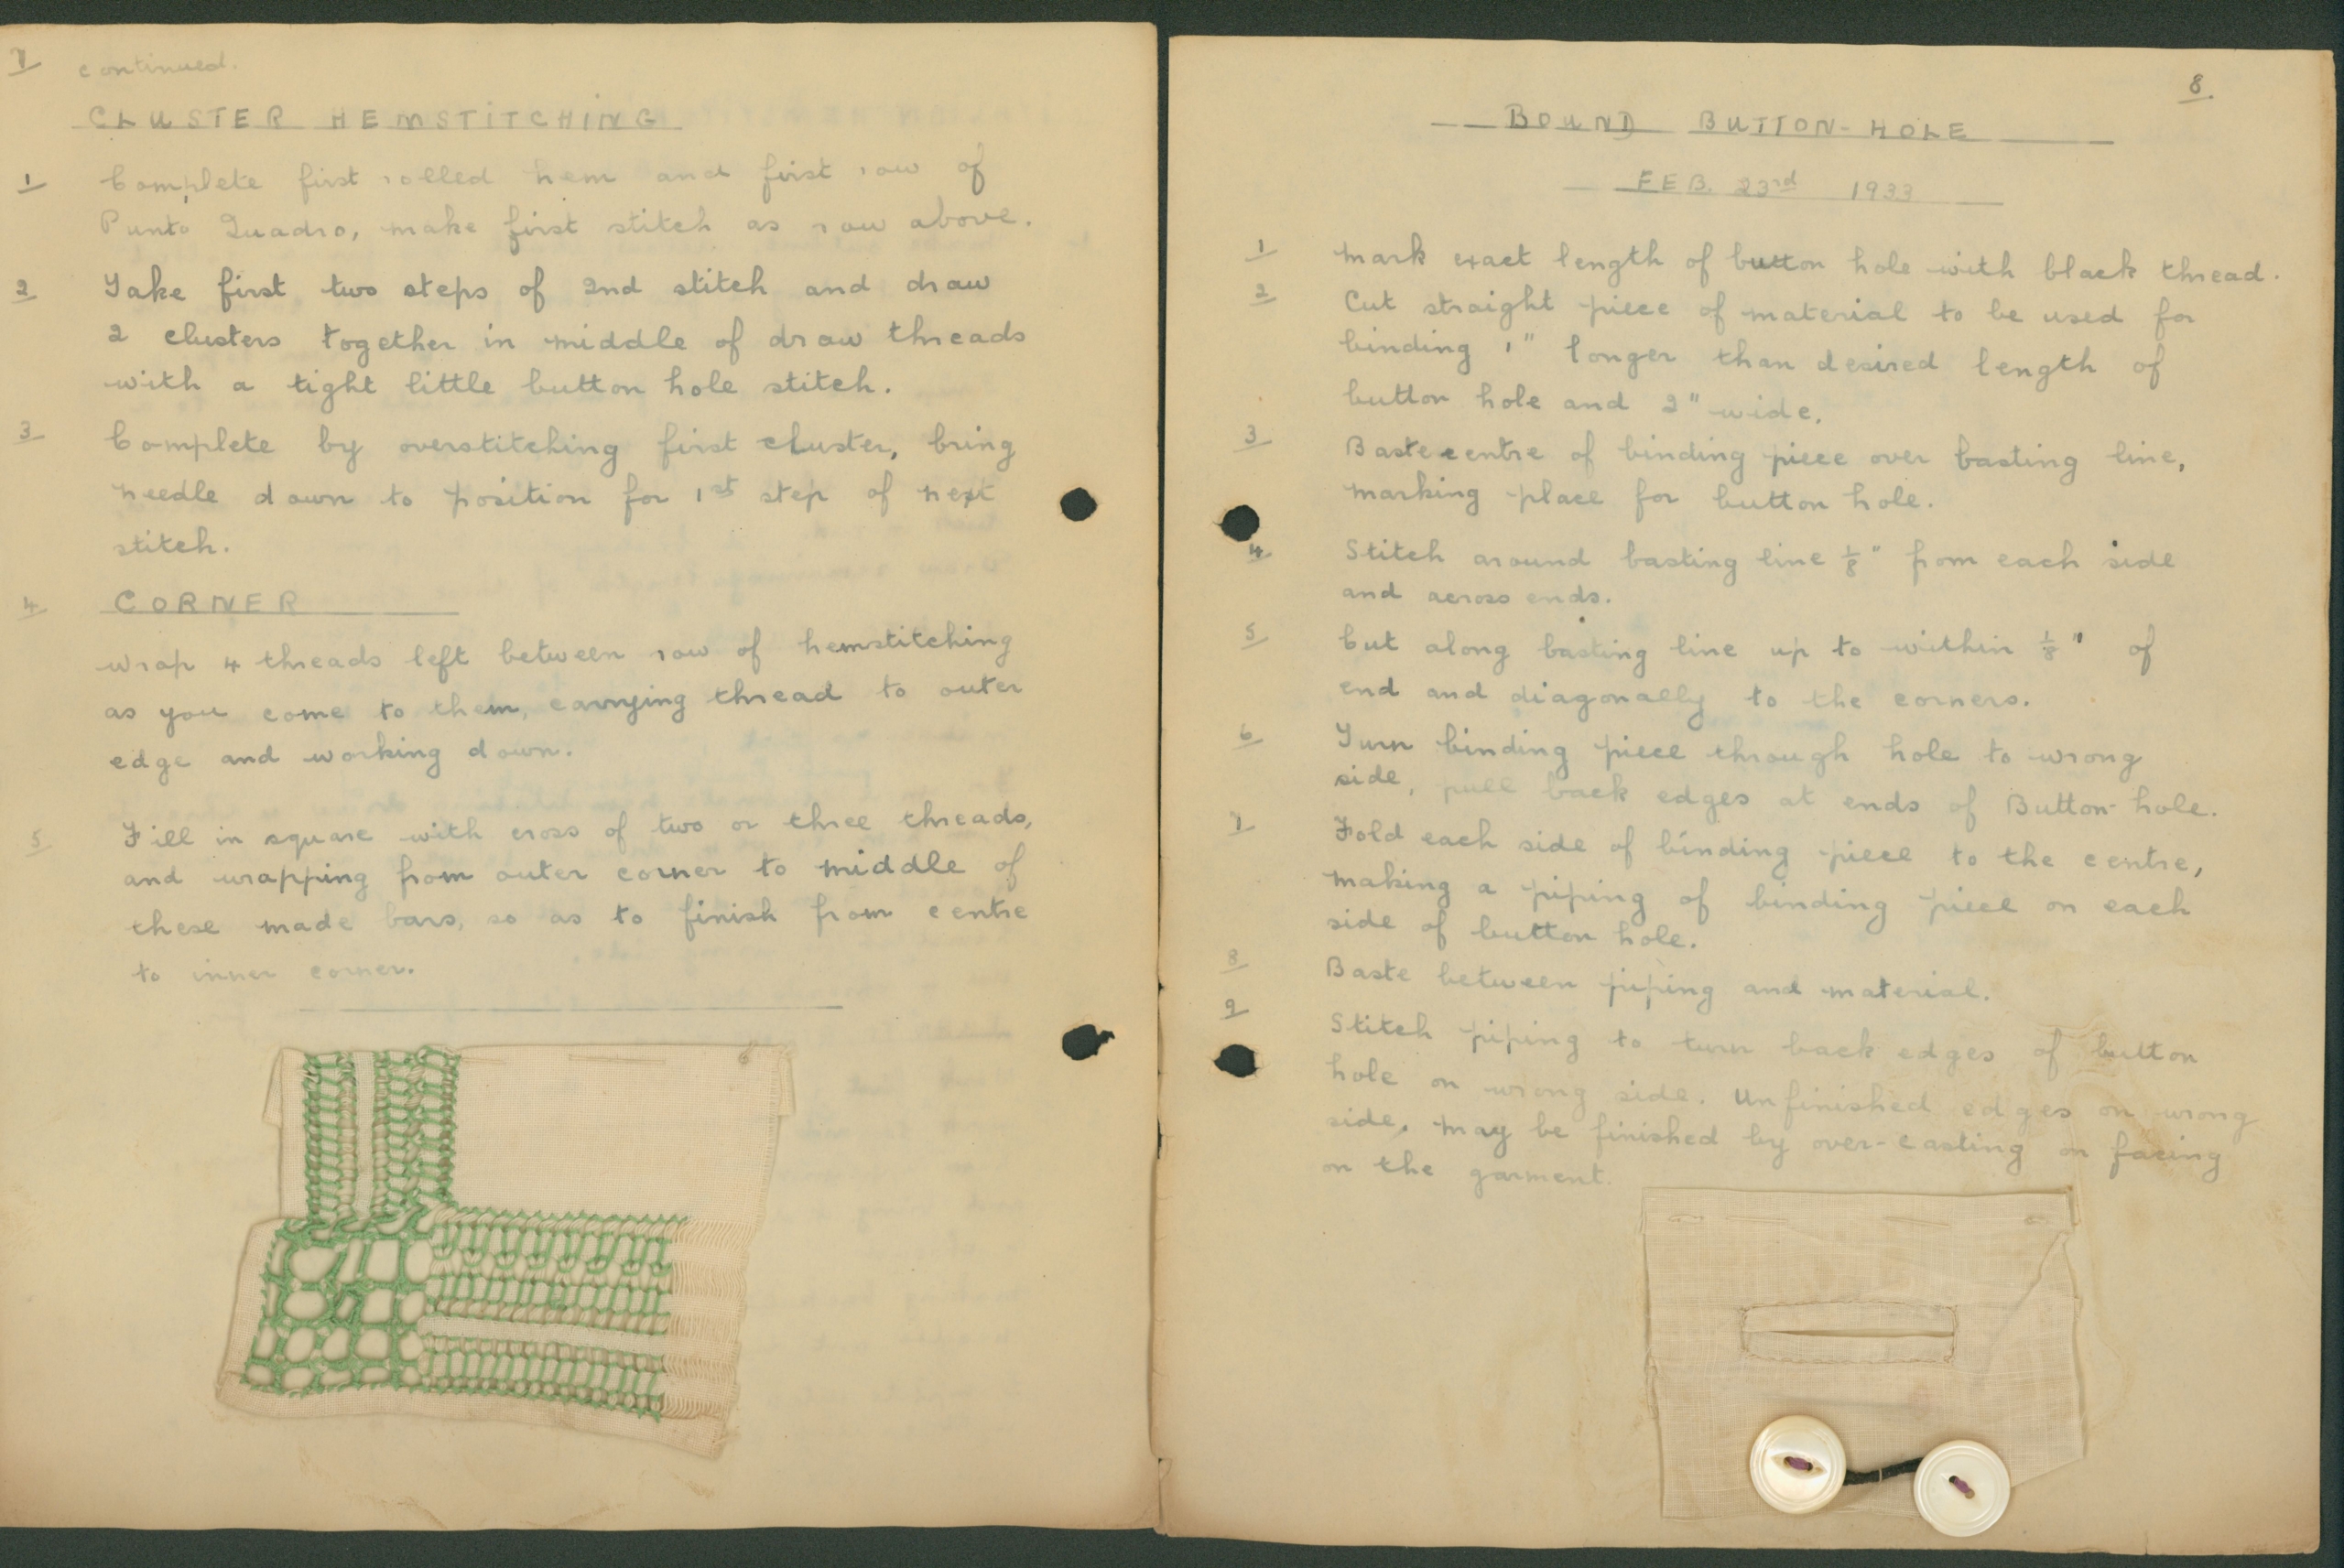 7 continued.
CLUSTER HEMSTITCHING
1 Complete first rolled hem and first row of
Punto Quadro, make first stitch as row above.
2 Take first two steps of 2nd stitch and draw
2 clusters together in middle of draw threads
with a tight little button hole stitch.
3 Complete by overstitching first cluster, bring
needle down to position for 1st step of next
stitch.
4 CORNER
wrap 4 threads left between row of hemstitching
as you come to them, carrying thread to outer
edge and working down.
5 Fill in square with cross of two or three threads,
and wrapping from outer corner to middle of
these made bars, so as to finish from centre
to inner corner.
8.
BOUND BUTTON-HOLE
FEB. 23rd 1933
1 Mark exact length of button hole with black thread.
2 Cut straight piece of material to be used for
binding 1" longer than desired length of
button hole and 2" wide.
3 Baste centre of binding piece over basting line,
marking place for button hole.
4 Stitch around basting line 1/8" from each side
and across ends.
5 Cut along basting line up to within 1/8" of
end and diagonally to the corners.
6 Turn binding piece through hole to wrong
side, pull back edges at ends of Button-hole.
7 Fold each side of binding piece to the centre,
making a piping of binding piece on each
side of button hole.
8 Baste between piping and material.
9 Stitch piping to turn back edges of button
hole on wrong side. Unfinished edges on wrong
side, may be finished by over-casting or facing
on the garment.